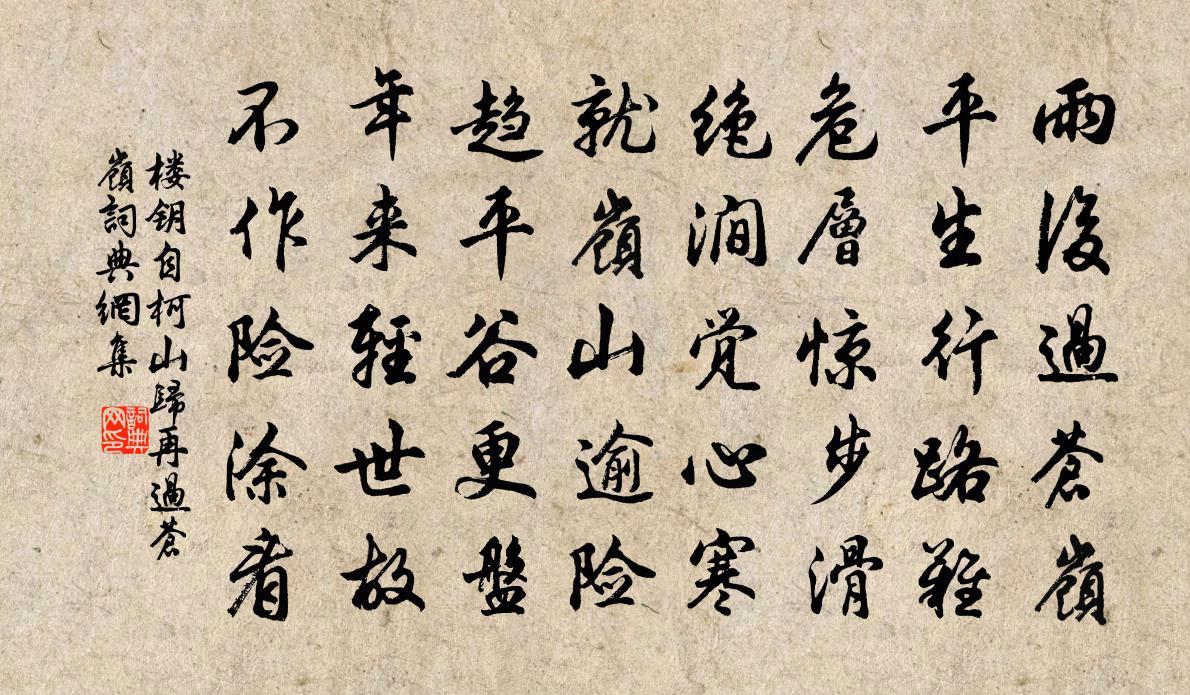 雨後過蒼嶺
平生行路難
危層惊步滑
绝澗觉心寒
就嶺山逾险
趋平谷更盤
年来輕世故
不作险涂看
楼钥自柯山歸再過蒼
嶺詞典網集
詞典
网印